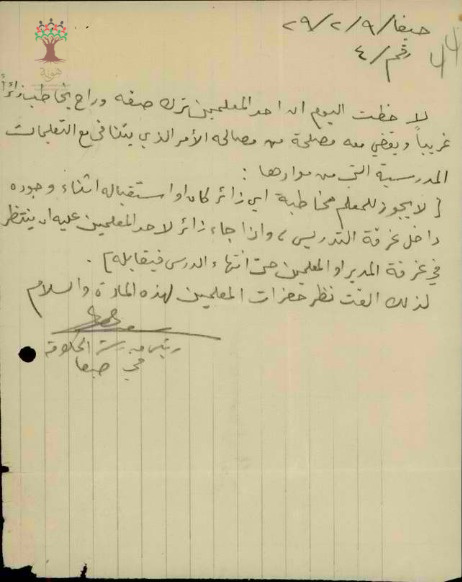 حيفا/٩/٢/٢٩
رقم/٤
لاحظت اليوم ان احد المعلمين ترك صفه وراح يخاطب زائراً
غريباً ويقضي معه مصلحة من مصالحه الأمر الذي يتنافى مع التعليمات
المدرسية التي من موادها :
[ لا يجوز للمعلم مخاطبة اي زائر كان او استقباله اثناء وجوده
داخل غرفة التدريس، واذا جاء زائر لاحد المعلمين عليه ان ينتظر
في غرفة المدير او المعلمين حتى انتهاء الدرس فيقابله ] .
لذلك الفت نظر حضرات المعلمين لهذه المادة والسلام
في حيفا